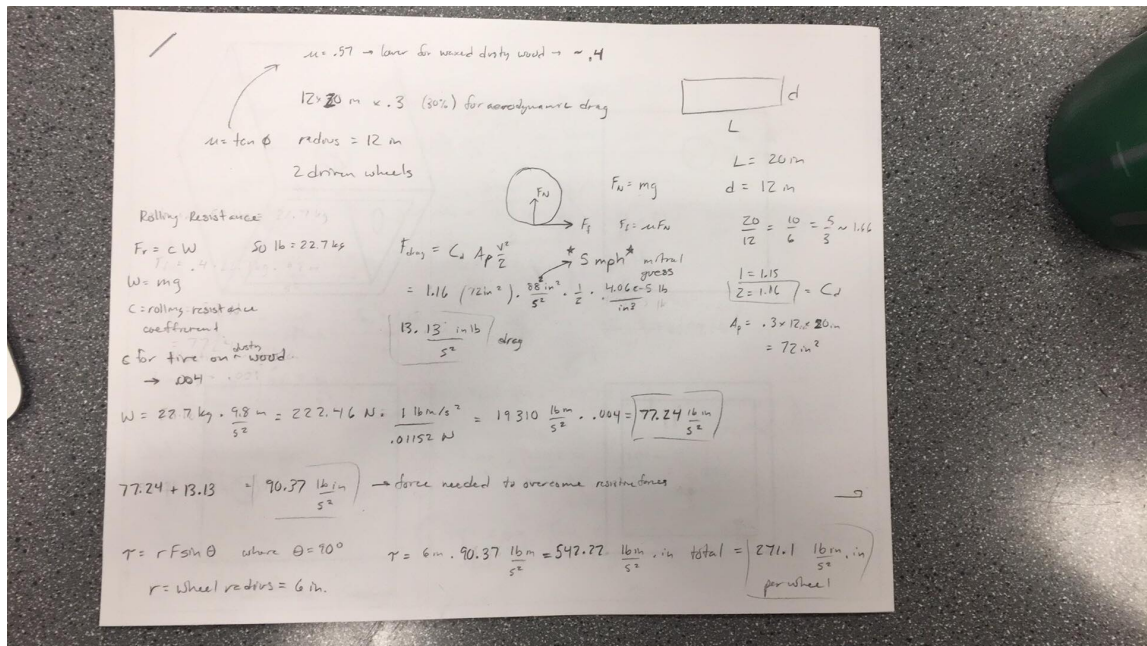 μ = .57 → lower for waxed dusty wood → ~ .4
12 x 20 in x .3 (30%) for aerodynamic drag
μ = tan ϕ radius = 12 in
2 driven wheels
d
L
L = 20 in
d = 12 in
20/12 = 10/6 = 5/3 ~ 1.66
1 = 1.15
2 = 1.16 = Cd
Ap = .3 x 12 x 20 in
= 72 in²
FN
Ff
FN = mg
Ff = μFN
Rolling Resistance
Fr = c W 50 lb = 22.7 kg
W = mg
C = rolling resistance
coefficient
c for tire on dusty wood
→ .004
Fdrag = Cd Ap v²/2
* 5 mph * initial guess
= 1.16 (72 in²) · 88² in²/s² · 1/2 · 4.06e-5 lb/in³
13.13 in lb/s² drag
W = 22.7 kg · 9.8 m/s² = 222.46 N · 1 lb in/s²/.01152 N = 19310 lb in/s² · .004 = 77.24 lb in/s²
77.24 + 13.13 = 90.37 lb in/s² → force needed to overcome resistive forces
τ = rF sin θ where θ = 90° τ = 6 in · 90.37 lb in/s² = 542.22 lb in/s² · in total = 271.1 lb in/s² · in
r = wheel radius = 6 in. per wheel